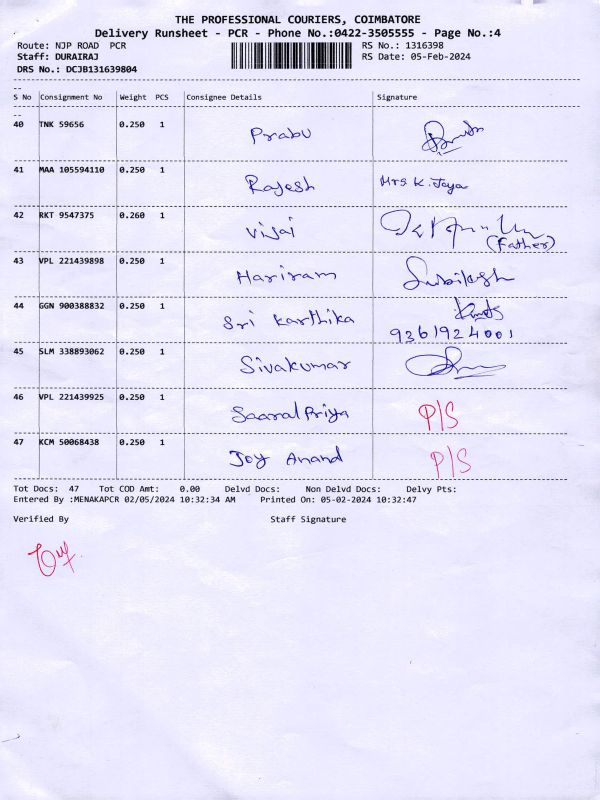 THE PROFESSIONAL COURIERS, COIMBATORE
Delivery Runsheet - PCR - Phone No.:0422-3505555 - Page No.:4
Route: NJP ROAD PCR RS No.: 1316398
Staff: DURAIRAJ RS Date: 05-Feb-2024
DRS No.: DCJB131639804
S No Consignment No Weight PCS Consignee Details Signature
40 TNK 59656 0.250 1 Prabu
41 MAA 105594110 0.250 1 Rajesh Mrs K. Jaya
42 RKT 9547375 0.260 1 Vijai
(Father)
43 VPL 221439898 0.250 1 Hariram
44 GGN 900388832 0.250 1 Sri Karthika
9361924001
45 SLM 338893062 0.250 1 Sivakumar
46 VPL 221439925 0.250 1 Saaral Priya P/S
47 KCM 50068438 0.250 1 Joy Anand P/S
Tot Docs: 47 Tot COD Amt: 0.00 Delvd Docs: Non Delvd Docs: Delvy Pts:
Entered By :MENAKAPCR 02/05/2024 10:32:34 AM Printed On: 05-02-2024 10:32:47
Verified By Staff Signature